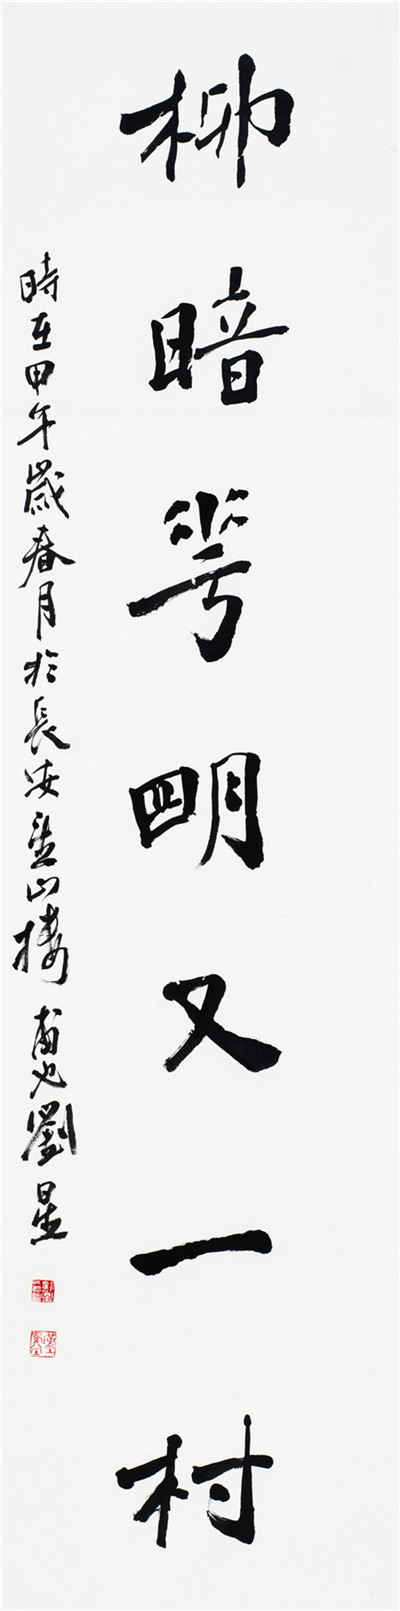 柳暗花明又一村
時在甲午歲春月於長安壺山樓 甫也劉星